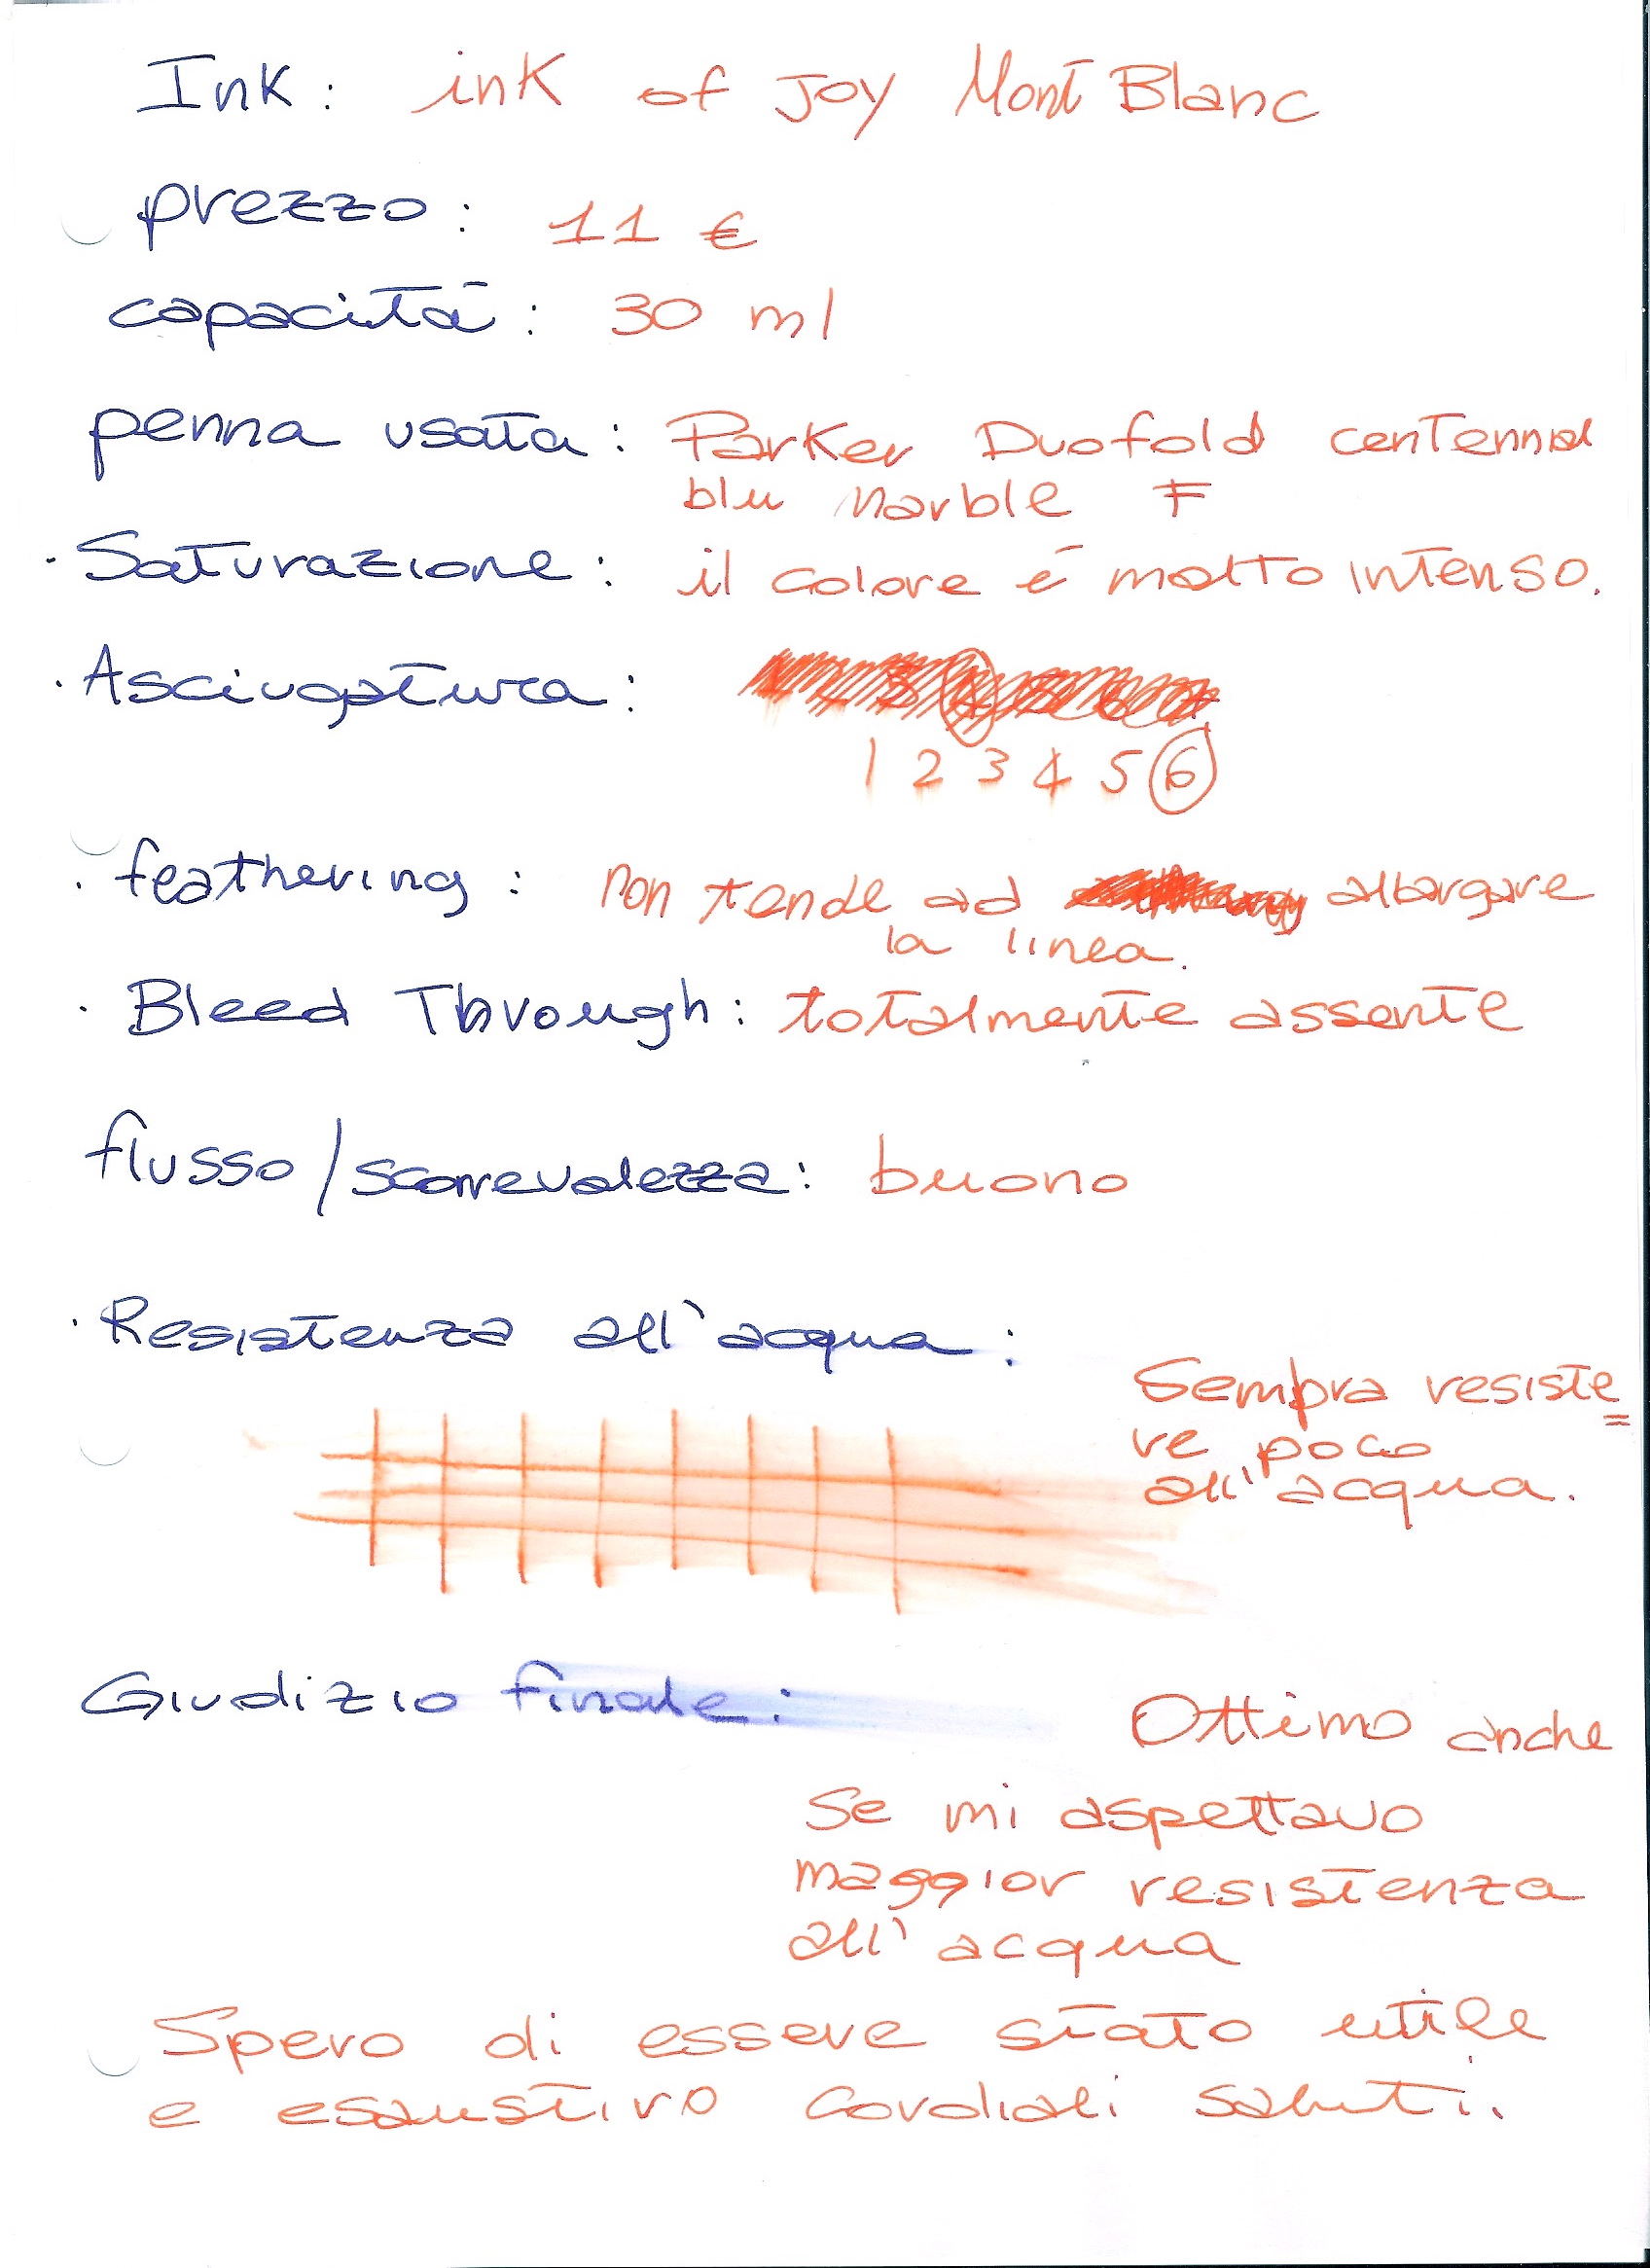 Ink: ink of Joy Mont Blanc
prezzo: 11 €
capacità: 30 ml
penna usata: Parker Duofold centennial
blu Marble F
· Saturazione: il colore è molto intenso.
· Asciugatura:
1 2 3 4 5 6
· feathering: non tende ad allargare
la linea.
· Bleed Through: totalmente assente
flusso/scorrevolezza: buono
· Resistenza all'acqua:
Sempra resiste=
re poco
all'acqua.
Giudizio finale: Ottimo anche
se mi aspettavo
maggior resistenza
all'acqua
Spero di essere stato utile
e esaustivo cordiali saluti.